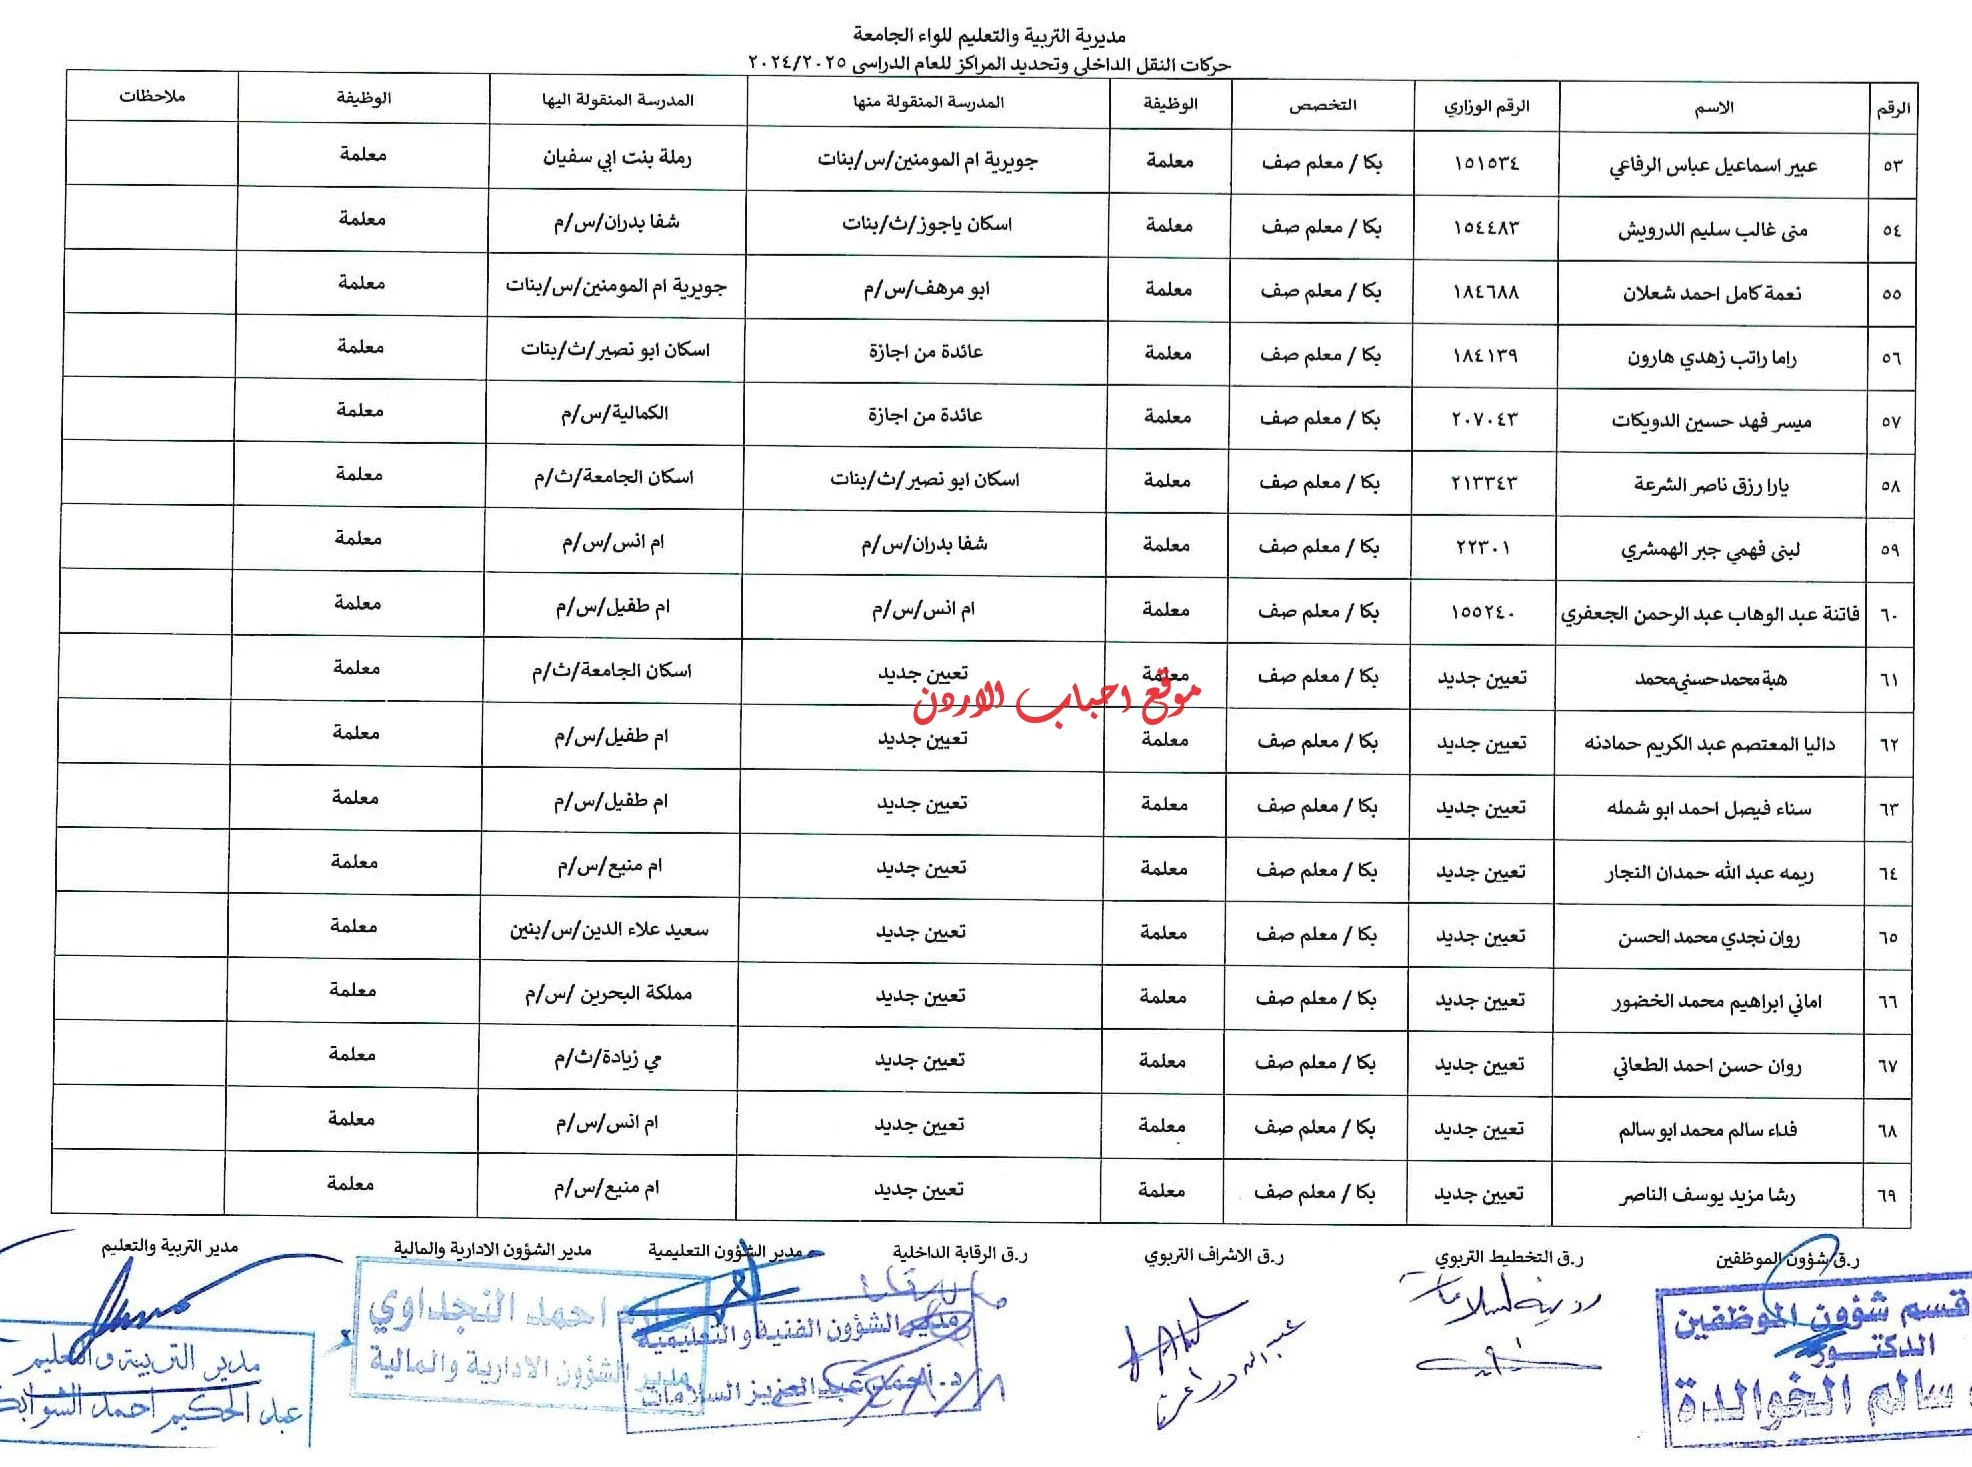 مديرية التربية والتعليم للواء الجامعة
حركات النقل الداخلي وتحديد المراكز للعام الدراسي ٢٠٢٤/٢٠٢٥
الرقم الاسم الرقم الوزاري التخصص الوظيفة المدرسة المنقولة منها المدرسة المنقولة اليها الوظيفة ملاحظات
٥٣ عبير اسماعيل عباس الرفاعي ١٥١٥٣٤ بكا / معلم صف معلمة جويرية ام المومنين/س/بنات رملة بنت ابي سفيان معلمة
٥٤ منى غالب سليم الدرويش ١٥٤٤٨٣ بكا / معلم صف معلمة اسكان ياجوز/ث/بنات شفا بدران/س/م معلمة
٥٥ نعمة كامل احمد شعلان ١٨٤٦٨٨ بكا / معلم صف معلمة ابو مرهف/س/م جويرية ام المومنين/س/بنات معلمة
٥٦ راما راتب زهدي هارون ١٨٤١٣٩ بكا / معلم صف معلمة عائدة من اجازة اسكان ابو نصير/ث/بنات معلمة
٥٧ ميسر فهد حسين الدويكات ٢٠٧٠٤٣ بكا / معلم صف معلمة عائدة من اجازة الكمالية/س/م معلمة
٥٨ يارا رزق ناصر الشرعة ٢١٣٣٤٣ بكا / معلم صف معلمة اسكان ابو نصير/ث/بنات اسكان الجامعة/ث/م معلمة
٥٩ لبنى فهمي جبر الهمشري ٢٢٣٠١ بكا / معلم صف معلمة شفا بدران/س/م ام انس/س/م معلمة
٦٠ فاتنة عبد الوهاب عبد الرحمن الجعفري ١٥٥٢٤٠ بكا / معلم صف معلمة ام انس/س/م ام طفيل/س/م معلمة
٦١ هبة محمد حسني محمد تعيين جديد بكا / معلم صف معلمة تعيين جديد اسكان الجامعة/ث/م معلمة
موقع احباب الاردن
٦٢ داليا المعتصم عبد الكريم حمادنه تعيين جديد بكا / معلم صف معلمة تعيين جديد ام طفيل/س/م معلمة
٦٣ سناء فيصل احمد ابو شمله تعيين جديد بكا / معلم صف معلمة تعيين جديد ام طفيل/س/م معلمة
٦٤ ريمه عبد الله حمدان النجار تعيين جديد بكا / معلم صف معلمة تعيين جديد ام منيع/س/م معلمة
٦٥ روان نجدي محمد الحسن تعيين جديد بكا / معلم صف معلمة تعيين جديد سعيد علاء الدين/س/بنين معلمة
٦٦ اماني ابراهيم محمد الخضور تعيين جديد بكا / معلم صف معلمة تعيين جديد مملكة البحرين /س/م معلمة
٦٧ روان حسن احمد الطعاني تعيين جديد بكا / معلم صف معلمة تعيين جديد مي زيادة/ث/م معلمة
٦٨ فداء سالم محمد ابو سالم تعيين جديد بكا / معلم صف معلمة تعيين جديد ام انس/س/م معلمة
٦٩ رشا مزيد يوسف الناصر تعيين جديد بكا / معلم صف معلمة تعيين جديد ام منيع/س/م معلمة
ر.ق شؤون الموظفين ر.ق التخطيط التربوي ر.ق الاشراف التربوي ر.ق الرقابة الداخلية مدير الشؤون التعليمية مدير الشؤون الادارية والمالية مدير التربية والتعليم
قسم شؤون الموظفين
الدكتور
سالم الخوالدة
مدير الشؤون الفنية والتعليمية
د. أحمد عبد العزيز السلامات
احمد النجداوي
مدير الشؤون الادارية والمالية
مدير التربية والتعليم
عبد الحكيم احمد الشوابكة